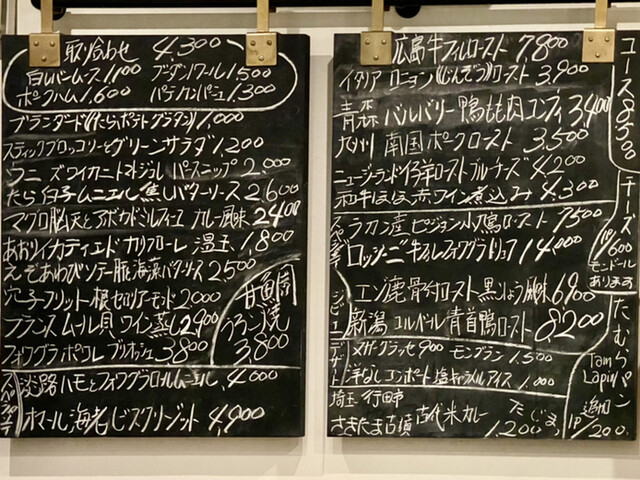 取り合わせ 4,300
白レバームース 1,100 ブーダンノワール 1,500
ポークハム 1,600 パテカンパーニュ 1,300
ブランダード(たらポテトグラタン) 1,000
スティックブロッコリーとグリーンサラダ 1,200
ウニ ズワイカニ トマトジュレ パースニップ 2,000
たら白子ムニエル 焦しバターソース 2,600
マグロ脳天とアボカド カレー風味 2400
あおりイカ カリフローレ 温玉 1,800
えぞあわびソテー 肝 海藻バターソース 2500
穴子フリット 根セロリ アーモンド 2000
フランス ムール貝 ワイン蒸し 2900
フォワグラポワレ ブリオッシュ 3800
甘鯛
ウロコ焼
3,800
淡路 ハモとフォワグラロールムニエル 4,000
オマール海老 4,900
広島牛フィレロースト 7,800
イタリア ロニョン(じんぞう)ロースト 3,900
青森 バルバリー鴨もも肉コンフィ 3,400
九州 南国ポークロースト 3,500
ニュージーランド仔羊ロースト ブルーチーズ 4200
和牛ほほ赤ワイン煮込み 4,300
ラカン産 ピジョン小鳩ロースト 7500
ロッシーニ 牛フィレフォワグラトリュフ 14,000
ジビエ
エゾ鹿骨付ロースト 黒こしょう風味 6,900
新潟 コルベール青首鴨ロースト 8,200
デザート
メガグラッセ 900 モンブラン 1,500
洋なしコンポート 塩キャラメルアイス 1,000
埼玉 行田市
さきたま古墳 古代米カレー 1,200
コース 8500
チーズ
1P 600
モンドール
あります
たむらパン
Tam
Lapin
追加
1P/200